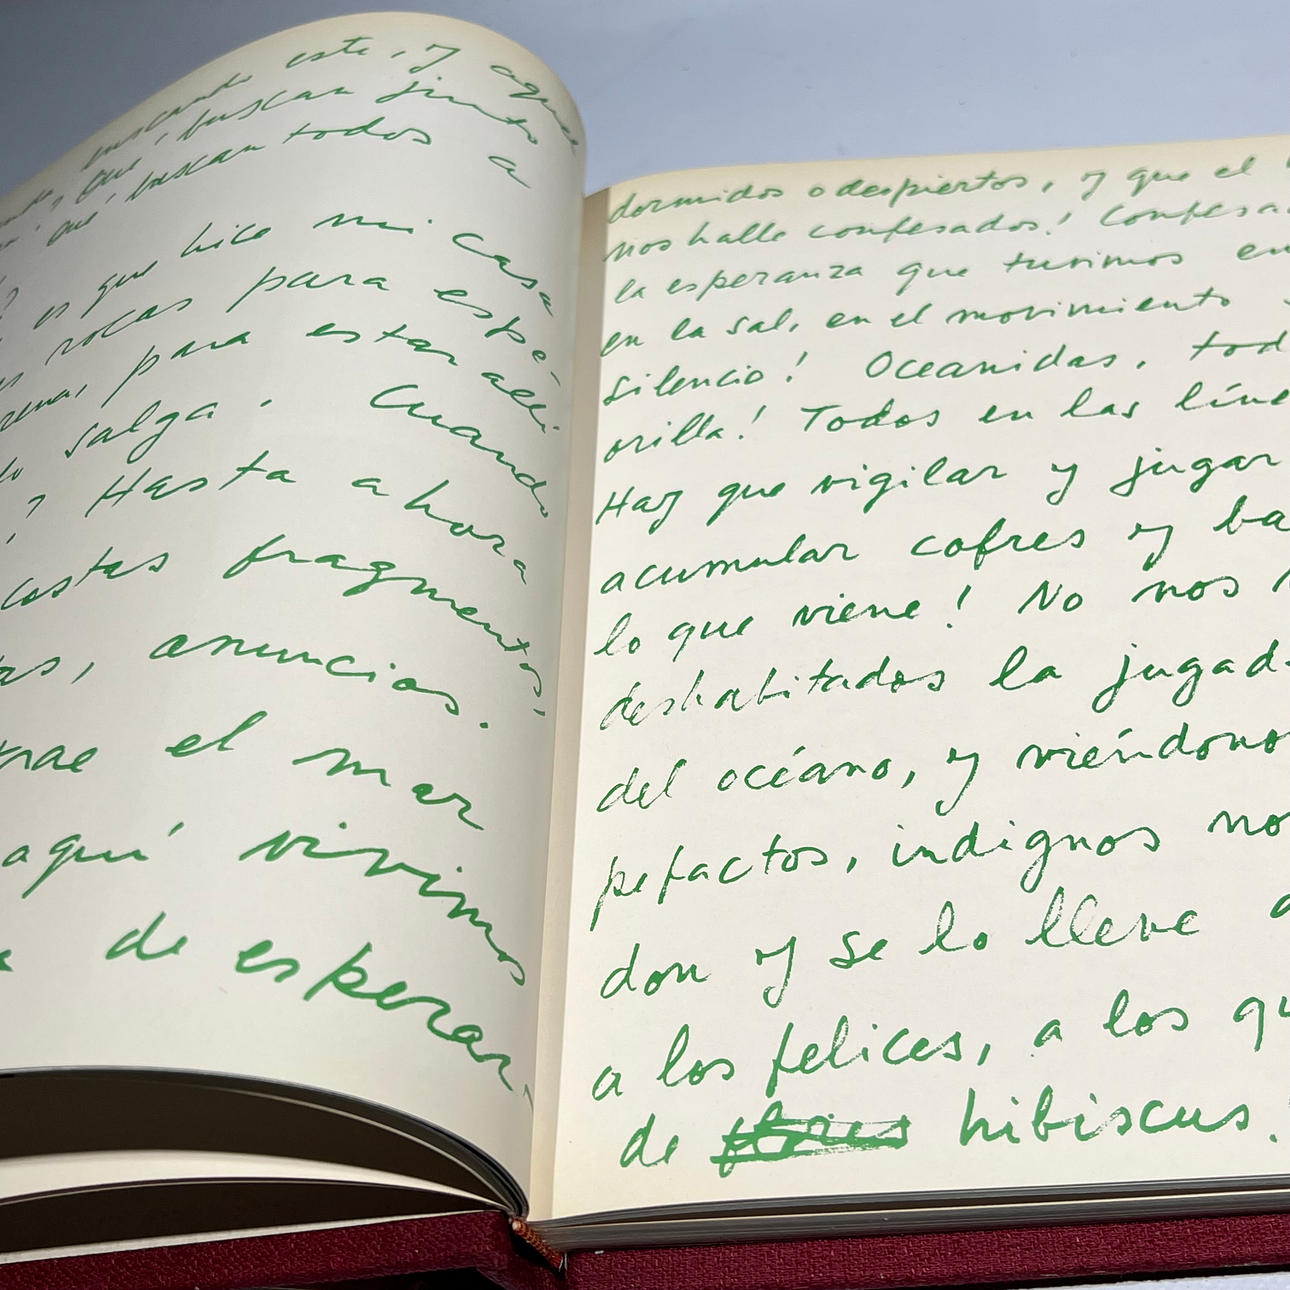 buscando este, y aquel
que, buscan junto
que, buscan todos a
es que hice mi casa
rocas para espe-
arena, para estar allí
salga. Cuando
? Hasta ahora
costas fragmentos,
anuncios.
trae el mar
aquí vivimos
de esperar.
dormidos o despiertos, y que el
nos halle confesados! Confesa
la esperanza que tuvimos en
en la sal, en el movimiento
silencio! Oceanidas, tod
orilla! Todos en las líne
Hay que vigilar y jugar
acumular cofres y ba
lo que viene! No nos
deshabitados la jugad
del océano, y viéndono
pefactos, indignos no
don y se lo lleve a
a los felices, a los qu
de flores hibiscus.